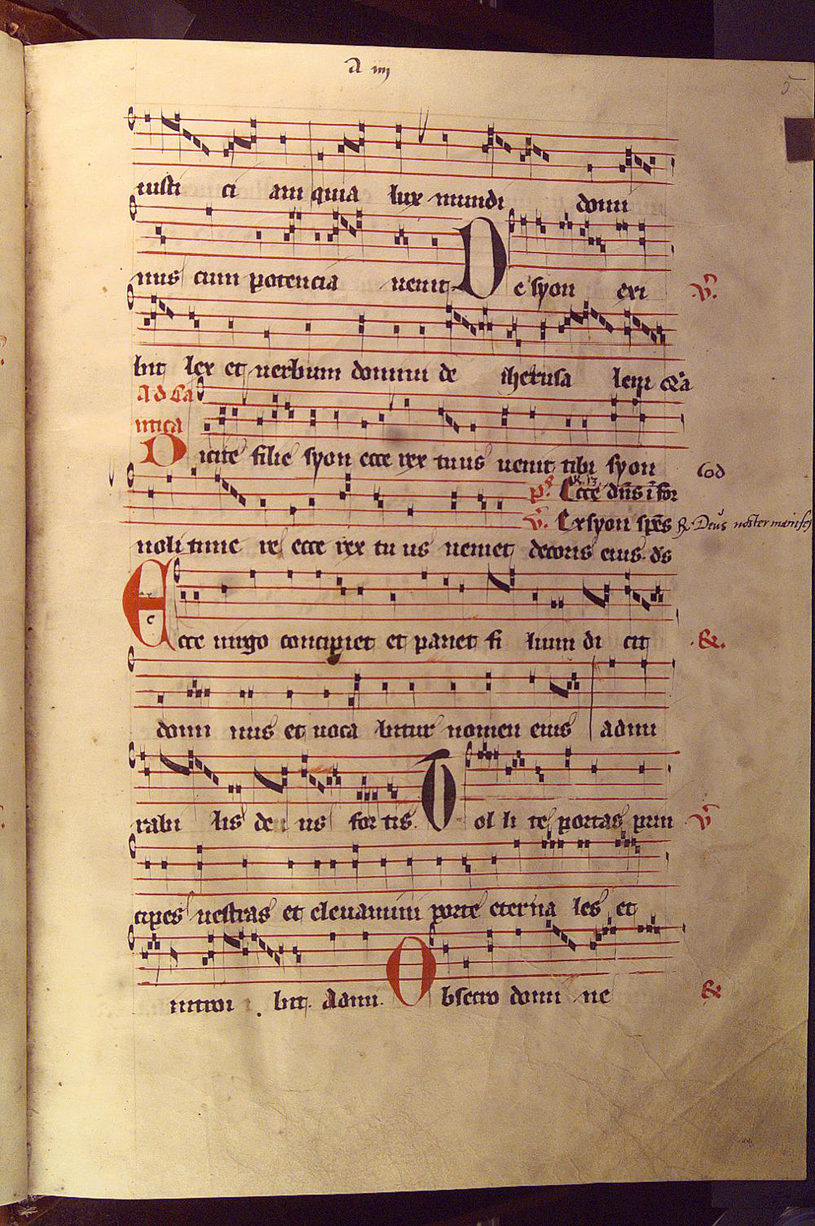 A iiij
5
iusti ci am quia lux mundi domi
nus cum potencia uenit De syon exi ℣.
bit lex et uerbum domini de iherusa lem
Ad Ca
ntica
Dicite filie syon ecce rex tuus uenit tibi syon
℣. Ex syon spēs ℟ Deus noster manifes
noli time re ecce rex tu us ueniet decoris eius ds
Ecce uirgo concipiet et pariet fi lium di cit ℟.
domi nus et uoca bitur nomen eius admi
rabi lis de us for tis. Tol li te portas prin ℣
cipes uestras et eleuamini porte eterna les et
introi bit. Admi. Obsecro domi ne ℟